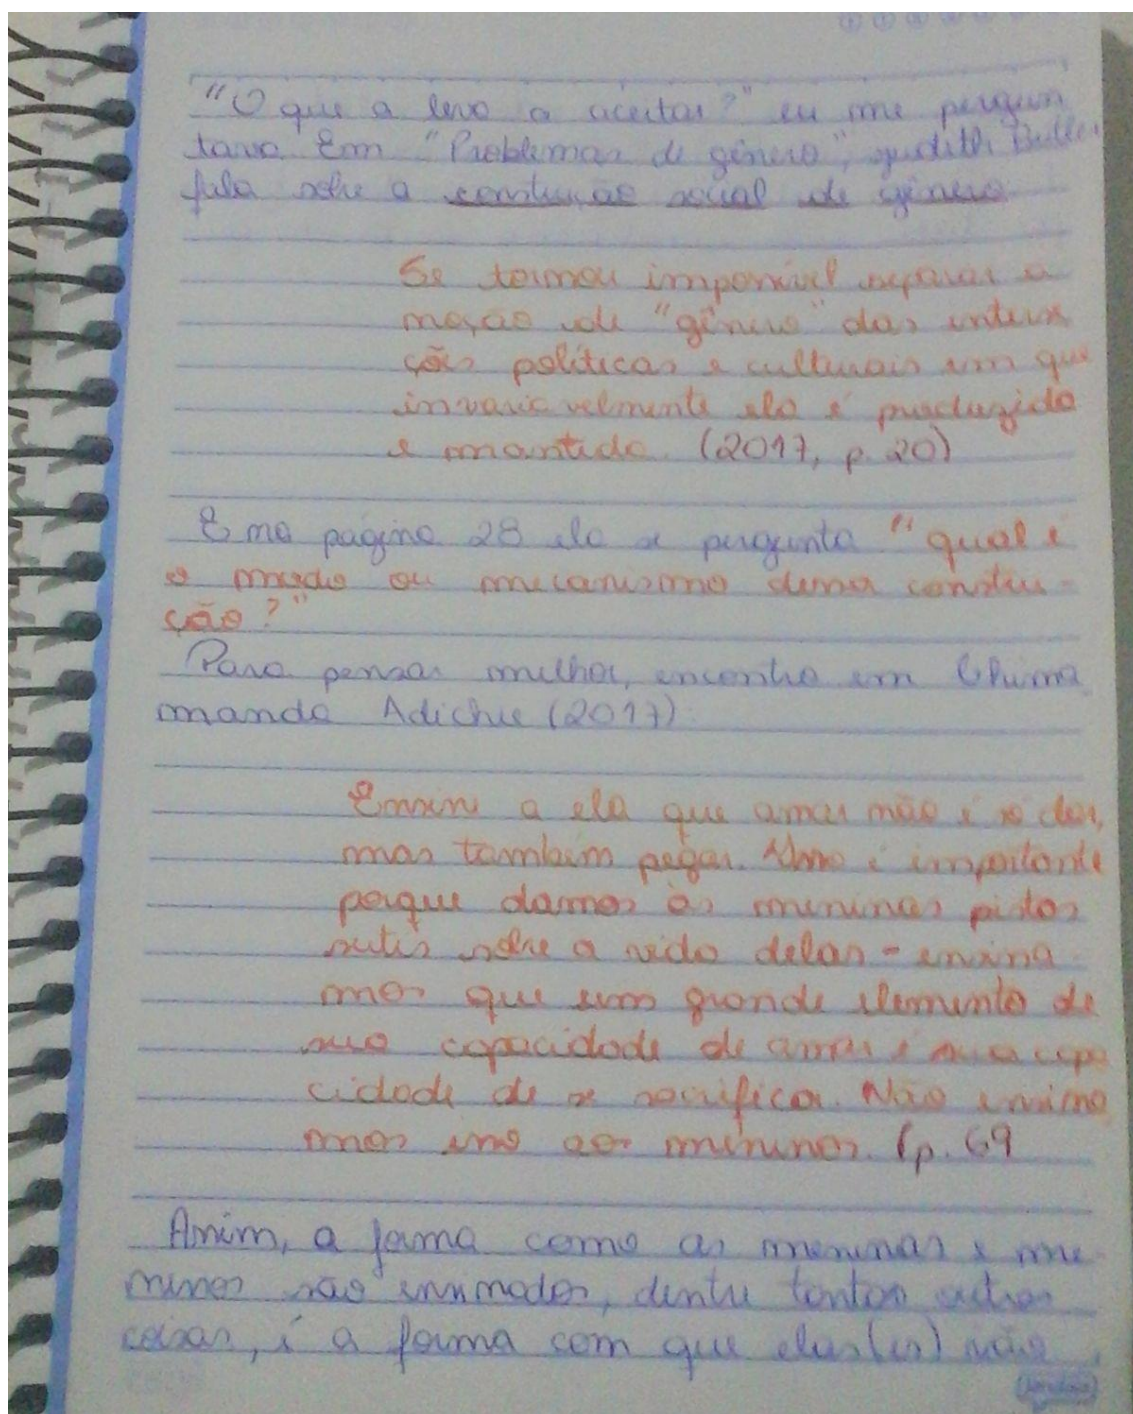 "O que a leva a aceitar?" eu me pergun
tava. Em "Problemas de gênero", Judith Butler
fala sobre a construção social de gênero:
Se tornou impossível separar a
noção de "gênero" das interse
ções políticas e culturais em que
invariavelmente ela é produzida
e mantida. (2017, p. 20)
E na página 28 ela se pergunta "qual é
o modo ou mecanismo dessa constru-
ção?"
Para pensar melhor, encontro em Chima
manda Adichie (2017):
Ensine a ela que amar não é só dar,
mas também pegar. Isso é importante
porque damos às meninas pistas
sutis sobre a vida delas - ensina
mos que um grande elemento de
sua capacidade de amar é sua capa
cidade de se sacrificar. Não ensina
mos isso aos meninos. (p. 69
Assim, a forma como as meninas e me
ninos são ensinados, dentre tantas outras
coisas, é a forma com que elas(es) vão